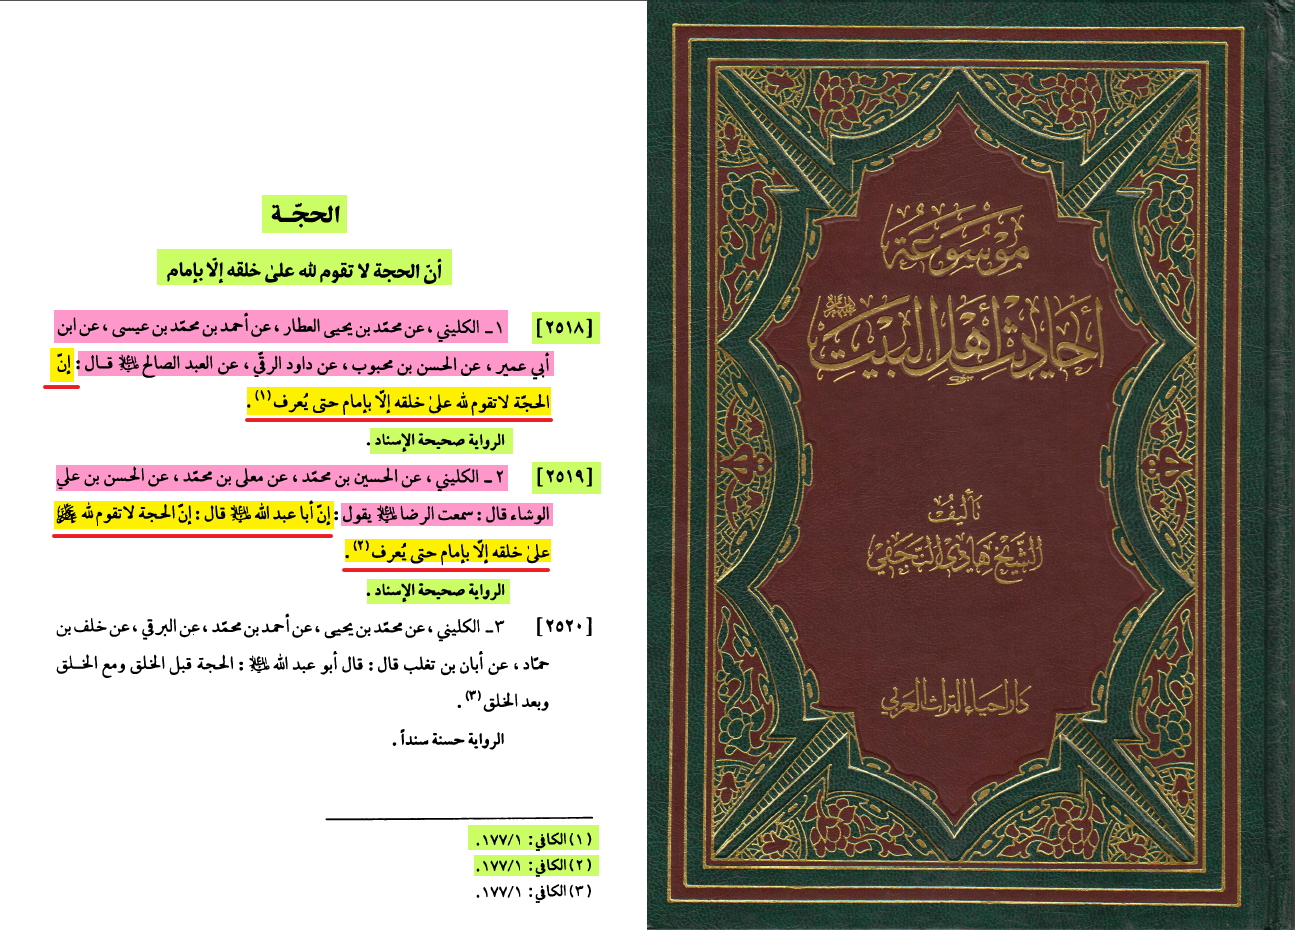 الحجّـة
أنّ الحجة لا تقوم لله علىٰ خلقه إلّا بإمام
[٢٥١٨] ١ ـ الكليني ، عن محمّد بن يحيى العطار ، عن أحمد بن محمّد بن عيسى ، عن ابن
أبي عمير ، عن الحسن بن محبوب ، عن داود الرقّي ، عن العبد الصالح ﷺ قـال : إنّ
الحجّة لا تقوم لله علىٰ خلقه إلّا بإمام حتى يُعرف (١) .
الرواية صحيحة الإسناد .
[٢٥١٩] ٢ ـ الكليني ، عن الحسين بن محمّد ، عن معلى بن محمّد ، عن الحسن بن علي
الوشاء قال : سمعت الرضا ﷺ يقول : إنّ أبا عبد الله ﷺ قال : إنّ الحجة لا تقوم لله ﷻ
علىٰ خلقه إلّا بإمام حتى يُعرف (٢) .
الرواية صحيحة الإسناد .
[٢٥٢٠] ٣ ـ الكليني ، عن محمّد بن يحيى ، عن أحمد بن محمّد ، عن البرقي ، عن خلف بن
حمّاد ، عن أبان بن تغلب قال : قال أبو عبد الله ﷺ : الحجة قبل الخلق ومع الخـلـق
وبعد الخلق (٣) .
الرواية حسنة سنداً .
(١) الكافي : ١٧٧/١ .
(٢) الكافي : ١٧٧/١ .
(٣) الكافي : ١٧٧/١ .
مَوْسُوعَة
أحَاديْث أهْل البَيت
تأليفُ
الشَّيْخ هَادي النَّجَفي
دَار احيَاء التراث العَربي